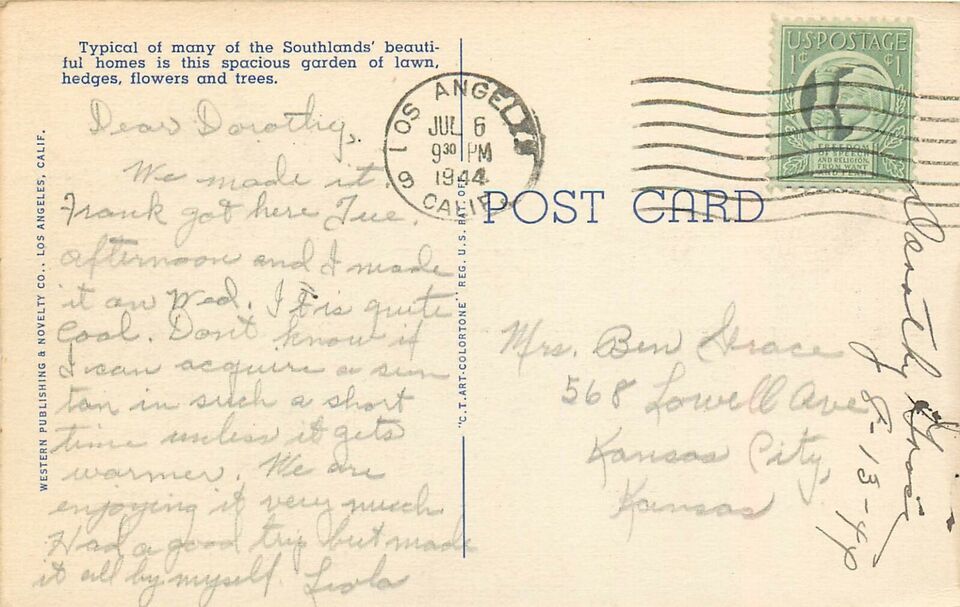 Typical of many of the Southlands' beauti-
ful homes is this spacious garden of lawn,
hedges, flowers and trees.
Dear Dorothy,
We made it.
Frank got here Tue.
afternoon and I made
it on Wed. It is quite
Cool. Don't know if
I can acquire a sun
tan in such a short
time unless it gets
warmer. We are
enjoying it very much
Had a good trip but made
it all by myself. Leola
WESTERN PUBLISHING & NOVELTY CO., LOS ANGELES, CALIF.
"C.T. ART-COLORTONE" REG. U.S. OF
LOS ANGELES
JUL 6
9 30 PM
1944
9 CALIF.
U.S. POSTAGE
1¢ ¢1
FREEDOM
OF SPEECH
AND RELIGION,
FROM WANT
AND FEAR
POST CARD
Mrs. Ben Grace
568 Lowell Ave
Kansas City,
Kansas
Dorothy Grace
8-13-46